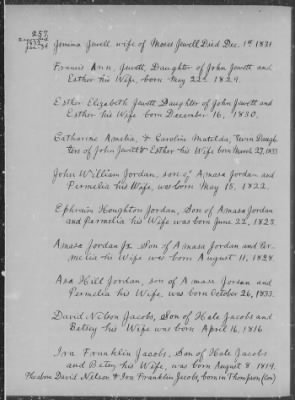 257
Jemima Jewell wife of Moses Jewell Died Dec. 1st 1831
Francis Ann, Jewett, Daughter of John Jewett and
Esther his Wife, born May 22d 1829.
Esther Elizabeth Jewett Daughter of John Jewett and
Esther his Wife born December 16, 1830.
Catharine Amelia, & Carolin Matilda, Twin Daugh-
ters of John Jewett & Esther his Wife born March 27, 1833
John William Jordan, son of Amasa Jordan and
Permelia his Wife, was born May 15, 1822.
Ephraim Houghton Jordan, Son of Amasa Jordan
and Permelia his Wife was born June 22, 1823.
Amasa Jordan Jr. Son of Amasa Jordan and Per-
melia his Wife was born August 11, 1828.
Asa Hill Jordan, son of Amasa Jordan and
Permelia his Wife, was born October 26, 1833.
David Nelson Jacobs, Son of Hale Jacobs and
Betsey his Wife was born April 16, 1816
Ira Franklin Jacobs, Son of Hale Jacobs
and Betsey his Wife, was born August 8 1819.
The above David Nelson & Ira Franklin Jacobs, born in Thompson (Con)